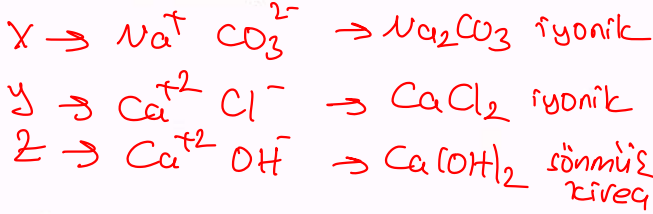 X → Na⁺ CO₃²⁻ → Na₂CO₃ iyonik
y → Ca⁺² Cl⁻ → CaCl₂ iyonik
Z → Ca⁺² OH⁻ → Ca(OH)₂ sönmüş
kireç